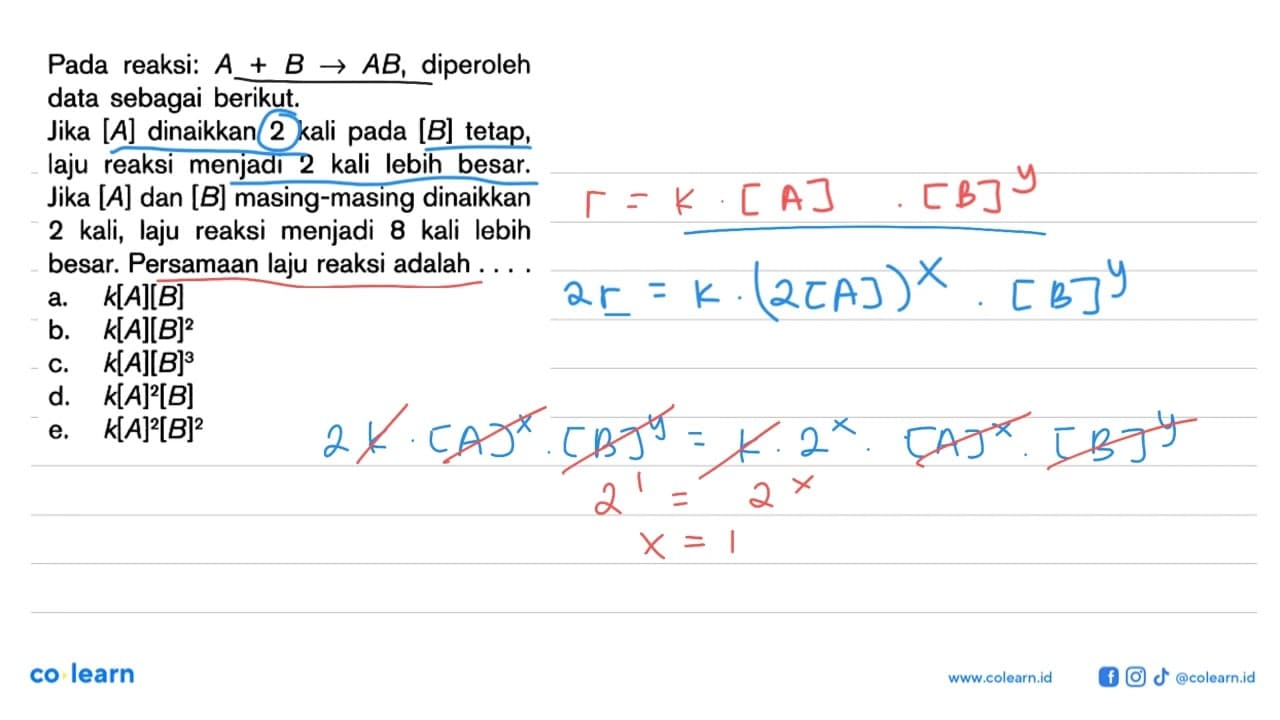 Pada reaksi: A + B → AB, diperoleh
data sebagai berikut.
Jika [A] dinaikkan 2 kali pada [B] tetap,
laju reaksi menjadi 2 kali lebih besar.
Jika [A] dan [B] masing-masing dinaikkan
2 kali, laju reaksi menjadi 8 kali lebih
besar. Persamaan laju reaksi adalah . . . .
a. k[A][B]
b. k[A][B]²
c. k[A][B]³
d. k[A]²[B]
e. k[A]²[B]²
r = k . [A] . [B]^y
2r = k . (2[A])^x . [B]^y
2k . [A]^x . [B]^y = k . 2^x . [A]^x . [B]^y
2^1 = 2^x
x = 1
co learn
www.colearn.id
@colearn.id